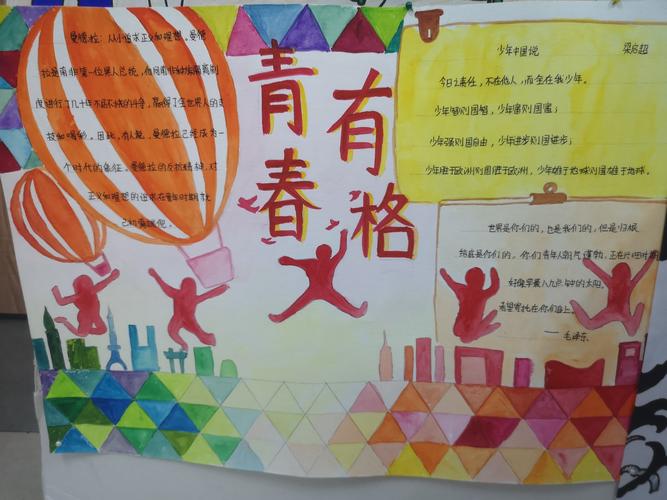 青春
有格
曼德拉:从小追求正义和理想。曼德
拉是南非第一位黑人总统,他同南非种族隔离制
度进行了几十年不屈不挠的斗争,赢得了全世界人的支
持和喝彩。因此,有人说,曼德拉已经成为一
个时代的象征。曼德拉的反抗精神,对
正义和理想的追求在童年时期就
已初露端倪。
少年中国说 梁启超
今日之责任,不在他人,而全在我少年。
少年智则国智,少年富则国富;
少年强则国强,少年独立则国独立;
少年自由则国自由,少年进步则国进步;
少年胜于欧洲则国胜于欧洲,少年雄于地球则国雄于地球。
世界是你们的,也是我们的,但是归根
结底是你们的。你们青年人朝气蓬勃,正在兴旺时期,
好像早晨八九点钟的太阳。
希望寄托在你们身上。
——毛泽东